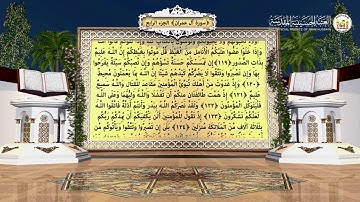 ﴿سورة آل عمران﴾ الجزء الرابع
العتبة الحسينية المقدسة
وَإِذَا خَلَوْا عَضُّوا عَلَيْكُمُ الْأَنَامِلَ مِنَ الْغَيْظِ قُلْ مُوتُوا بِغَيْظِكُمْ إِنَّ اللَّهَ عَلِيمٌ
بِذَاتِ الصُّدُورِ ﴿١١٩﴾ إِنْ تَمْسَسْكُمْ حَسَنَةٌ تَسُؤْهُمْ وَإِنْ تُصِبْكُمْ سَيِّئَةٌ يَفْرَحُوا
بِهَا وَإِنْ تَصْبِرُوا وَتَتَّقُوا لَا يَضُرُّكُمْ كَيْدُهُمْ شَيْئًا إِنَّ اللَّهَ بِمَا يَعْمَلُونَ مُحِيطٌ
﴿١٢٠﴾ وَإِذْ غَدَوْتَ مِنْ أَهْلِكَ تُبَوِّئُ الْمُؤْمِنِينَ مَقَاعِدَ لِلْقِتَالِ وَاللَّهُ سَمِيعٌ
عَلِيمٌ ﴿١٢١﴾ إِذْ هَمَّتْ طَائِفَتَانِ مِنْكُمْ أَنْ تَفْشَلَا وَاللَّهُ وَلِيُّهُمَا وَعَلَى اللَّهِ
فَلْيَتَوَكَّلِ الْمُؤْمِنُونَ ﴿١٢٢﴾ وَلَقَدْ نَصَرَكُمُ اللَّهُ بِبَدْرٍ وَأَنْتُمْ أَذِلَّةٌ فَاتَّقُوا اللَّهَ
لَعَلَّكُمْ تَشْكُرُونَ ﴿١٢٣﴾ إِذْ تَقُولُ لِلْمُؤْمِنِينَ أَلَنْ يَكْفِيَكُمْ أَنْ يُمِدَّكُمْ رَبُّكُمْ
بِثَلَاثَةِ آلَافٍ مِنَ الْمَلَائِكَةِ مُنْزَلِينَ ﴿١٢٤﴾ بَلَى إِنْ تَصْبِرُوا وَتَتَّقُوا وَيَأْتُوكُمْ مِنْ